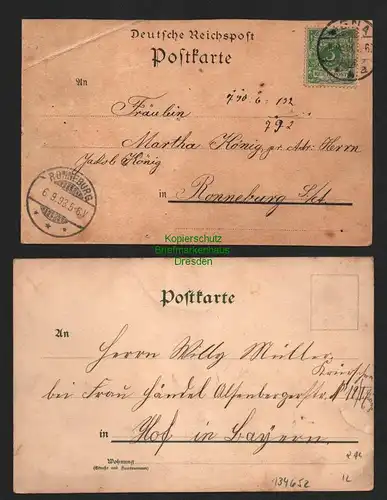 Deutsche Reichspost
Postkarte
An
Fräulein
Martha König, pr. Adr. Herrn
Jakob König
in Ronneburg S/A.
RONNEBURG
6.9.98.5-6N
Kopierschutz
Briefmarkenhaus
Dresden
Postkarte
An
Herrn Willy Müller
bei Frau Händel Altenbergerstr.
in Hof in Bayern.
Wohnung
(Straße und Hausnummer)
134652